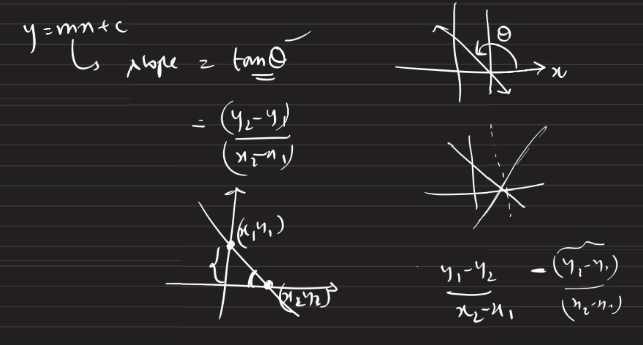 y=mx+c
slope = tanθ
= (y₂-y₁)
(x₂-x₁)
θ
x
(x₁y₁)
(x₂y₂)
y₁-y₂
x₂-x₁
-(y₁-y₁)
(x₂-x₁)